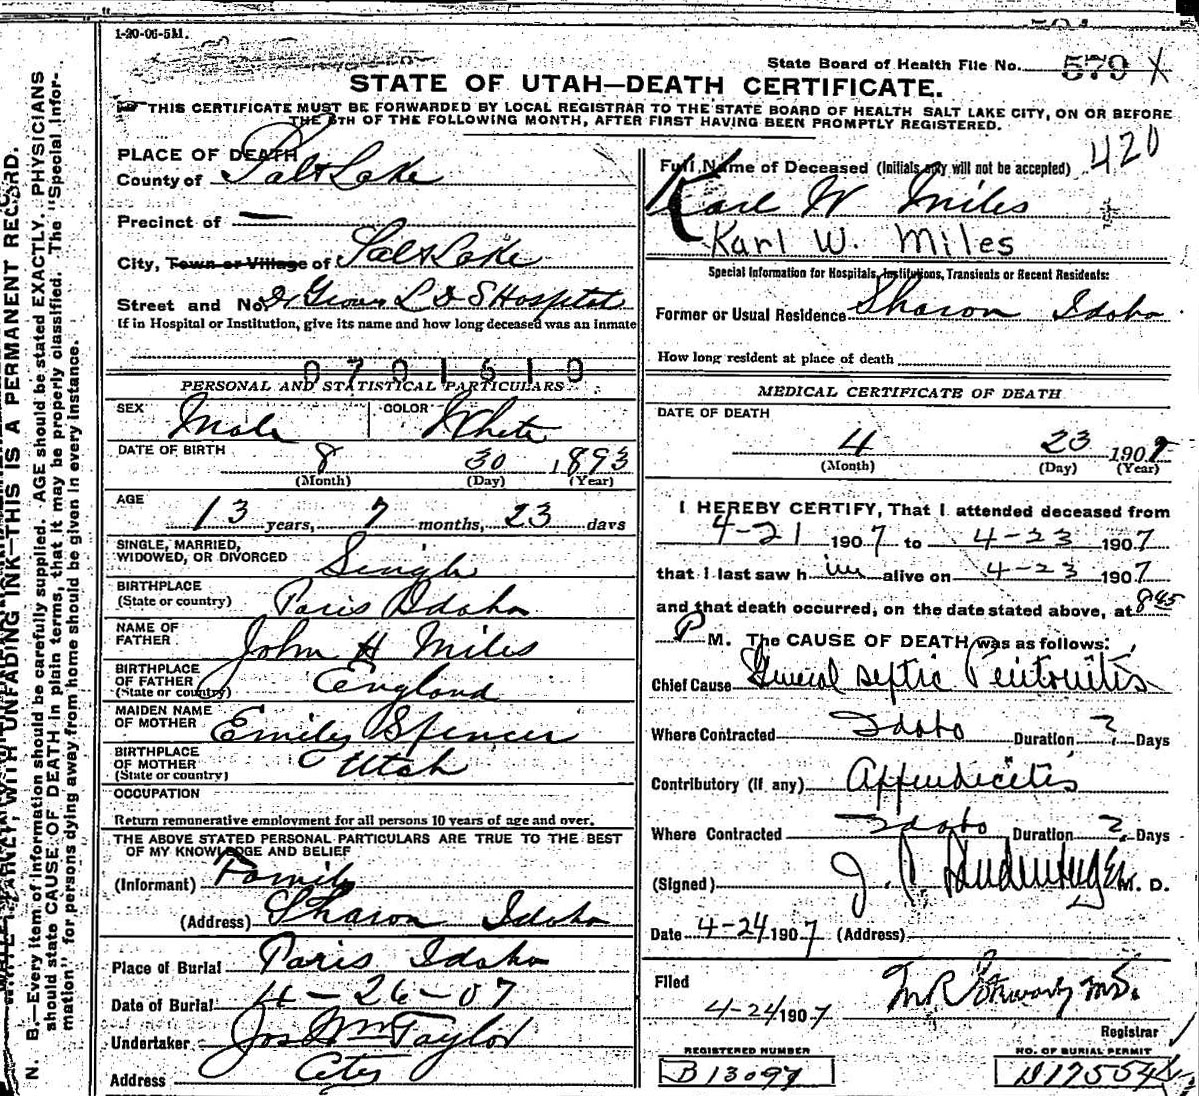 1-20-06-5M.
State Board of Health File No. 579 X
STATE OF UTAH—DEATH CERTIFICATE.
THIS CERTIFICATE MUST BE FORWARDED BY LOCAL REGISTRAR TO THE STATE BOARD OF HEALTH SALT LAKE CITY, ON OR BEFORE
THE 5TH OF THE FOLLOWING MONTH, AFTER FIRST HAVING BEEN PROMPTLY REGISTERED.
N. B.—Every item of information should be carefully supplied. AGE should be stated EXACTLY. PHYSICIANS
should state CAUSE OF DEATH in plain terms, that it may be properly classified. The "Special Infor-
mation" for persons dying away from home should be given in every instance.
WRITE PLAINLY, WITH UNFADING INK—THIS IS A PERMANENT RECORD.
PLACE OF DEATH
County of Salt Lake
Precinct of —
City, Town or Village of Salt Lake
Street and No. Dr Groves L D S Hospital
If in Hospital or Institution, give its name and how long deceased was an inmate
0701610
PERSONAL AND STATISTICAL PARTICULARS
SEX Male COLOR White
DATE OF BIRTH 8 30 1893
(Month) (Day) (Year)
AGE
13 years, 7 months, 23 days
SINGLE, MARRIED,
WIDOWED, OR DIVORCED Single
BIRTHPLACE
(State or country) Paris Idaho
NAME OF
FATHER John H Miles
BIRTHPLACE
OF FATHER
(State or country) England
MAIDEN NAME
OF MOTHER Emily Spencer
BIRTHPLACE
OF MOTHER
(State or country) Utah
OCCUPATION
Return remunerative employment for all persons 10 years of age and over.
THE ABOVE STATED PERSONAL PARTICULARS ARE TRUE TO THE BEST
OF MY KNOWLEDGE AND BELIEF
(Informant) Family
(Address) Sharon Idaho
Place of Burial Paris Idaho
Date of Burial 4-26-07
Undertaker Jos Wm Taylor
Address City
Full Name of Deceased (Initials only will not be accepted) 420
Karl W Miles
Karl W. Miles
Special Information for Hospitals, Institutions, Transients or Recent Residents:
Former or Usual Residence Sharon Idaho
How long resident at place of death
MEDICAL CERTIFICATE OF DEATH
DATE OF DEATH
4 23 1907
(Month) (Day) (Year)
I HEREBY CERTIFY, That I attended deceased from
4-21 1907 to 4-23 1907
that I last saw him alive on 4-23 1907
and that death occurred, on the date stated above, at 8 45
P M. The CAUSE OF DEATH was as follows:
Chief Cause General septic Peritonitis
Where Contracted Idaho Duration ? Days
Contributory (if any) Appendicitis
Where Contracted Idaho Duration ? Days
(Signed) J. P. M. D.
Date 4-24 1907 (Address)
Filed
4-24 1907 M R Stewart M.D.
Registrar
REGISTERED NUMBER
B13097
NO. OF BURIAL PERMIT
D17554